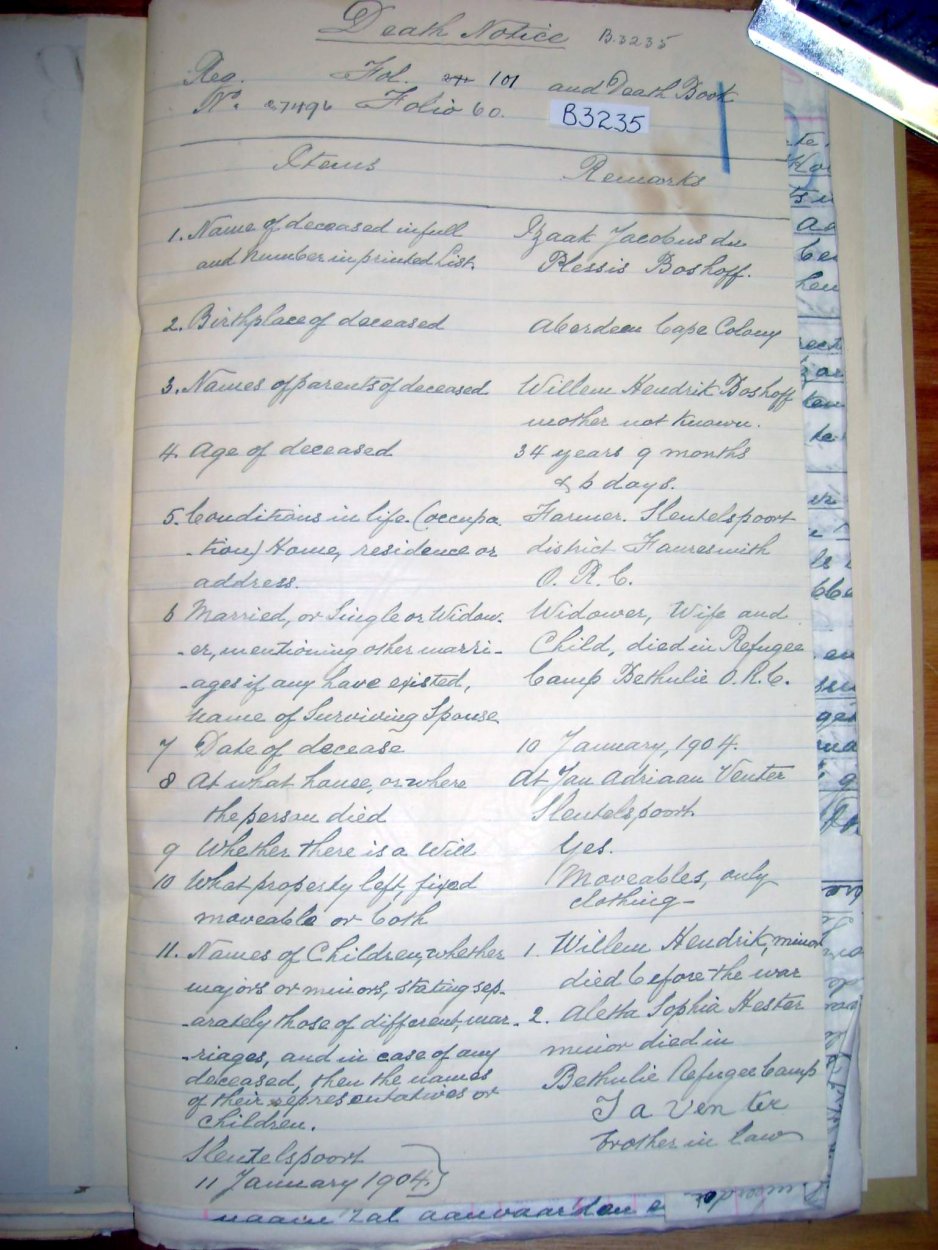 Death Notice B.3235
Reg. Fol. 101 and Death Book
No. 27496 Folio 60.
B3235
Items Remarks
1. Name of deceased in full Izaak Jacobus du
and Number in printed List. Plessis Boshoff.
2. Birthplace of deceased Aberdeen Cape Colony
3. Names of parents of deceased Willem Hendrik Boshoff
mother not known.
4. Age of deceased 34 years 9 months
& 6 days.
5. Conditions in life (occupa- Farmer. Sleutelspoort
-tion) Home, residence or district Fauresmith
address. O.R.C.
6 Married, or Single or Widow- Widower, Wife and
-er, mentioning other marri- Child, died in Refugee
-ages if any have existed, Camp Bethulie O.R.C.
name of Surviving Spouse
7 Date of decease 10 January, 1904.
8 At what house, or where At Jan Adriaan Venter
the person died Sleutelspoort
9 Whether there is a Will Yes.
10 What property left, fixed Moveables, only
moveable or both clothing-
11. Names of Children, whether 1. Willem Hendrik, minor
majors or minors, stating sep- died before the war
-arately those of different mar- 2. Aletta Sophia Hester
-riages, and in case of any minor died in
deceased, then the names Bethulie Refugee Camp
of their representatives or J A Venter
children. brother in law
Sleutelspoort
11 January 1904
naam zal aanvaarden